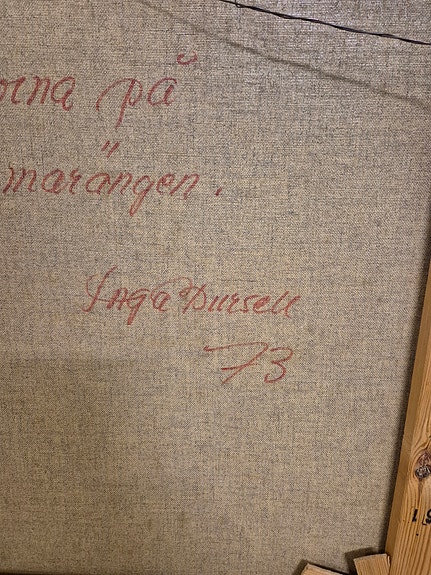 orna på
marängen.
Inga Dursell
73